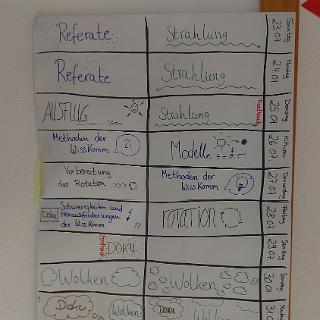 Referate
Strahlung
Sonntag
23.07
Referate
Strahlung
Montag
24.07
AUSFLUG
Strahlung
25.07
Methoden der
WissKomm
Modelle
26.07.
Vorbereitung
der Rotation >>>
Methoden der
WissKomm
27.07
Doku
Schwierigkeiten und
Herausforderungen
der WissKomm
ROTATION
28.07
DOKU
29.07
Wolken
Wolken
30.07
Doku
Wolken
Doku
Wolken
31.07